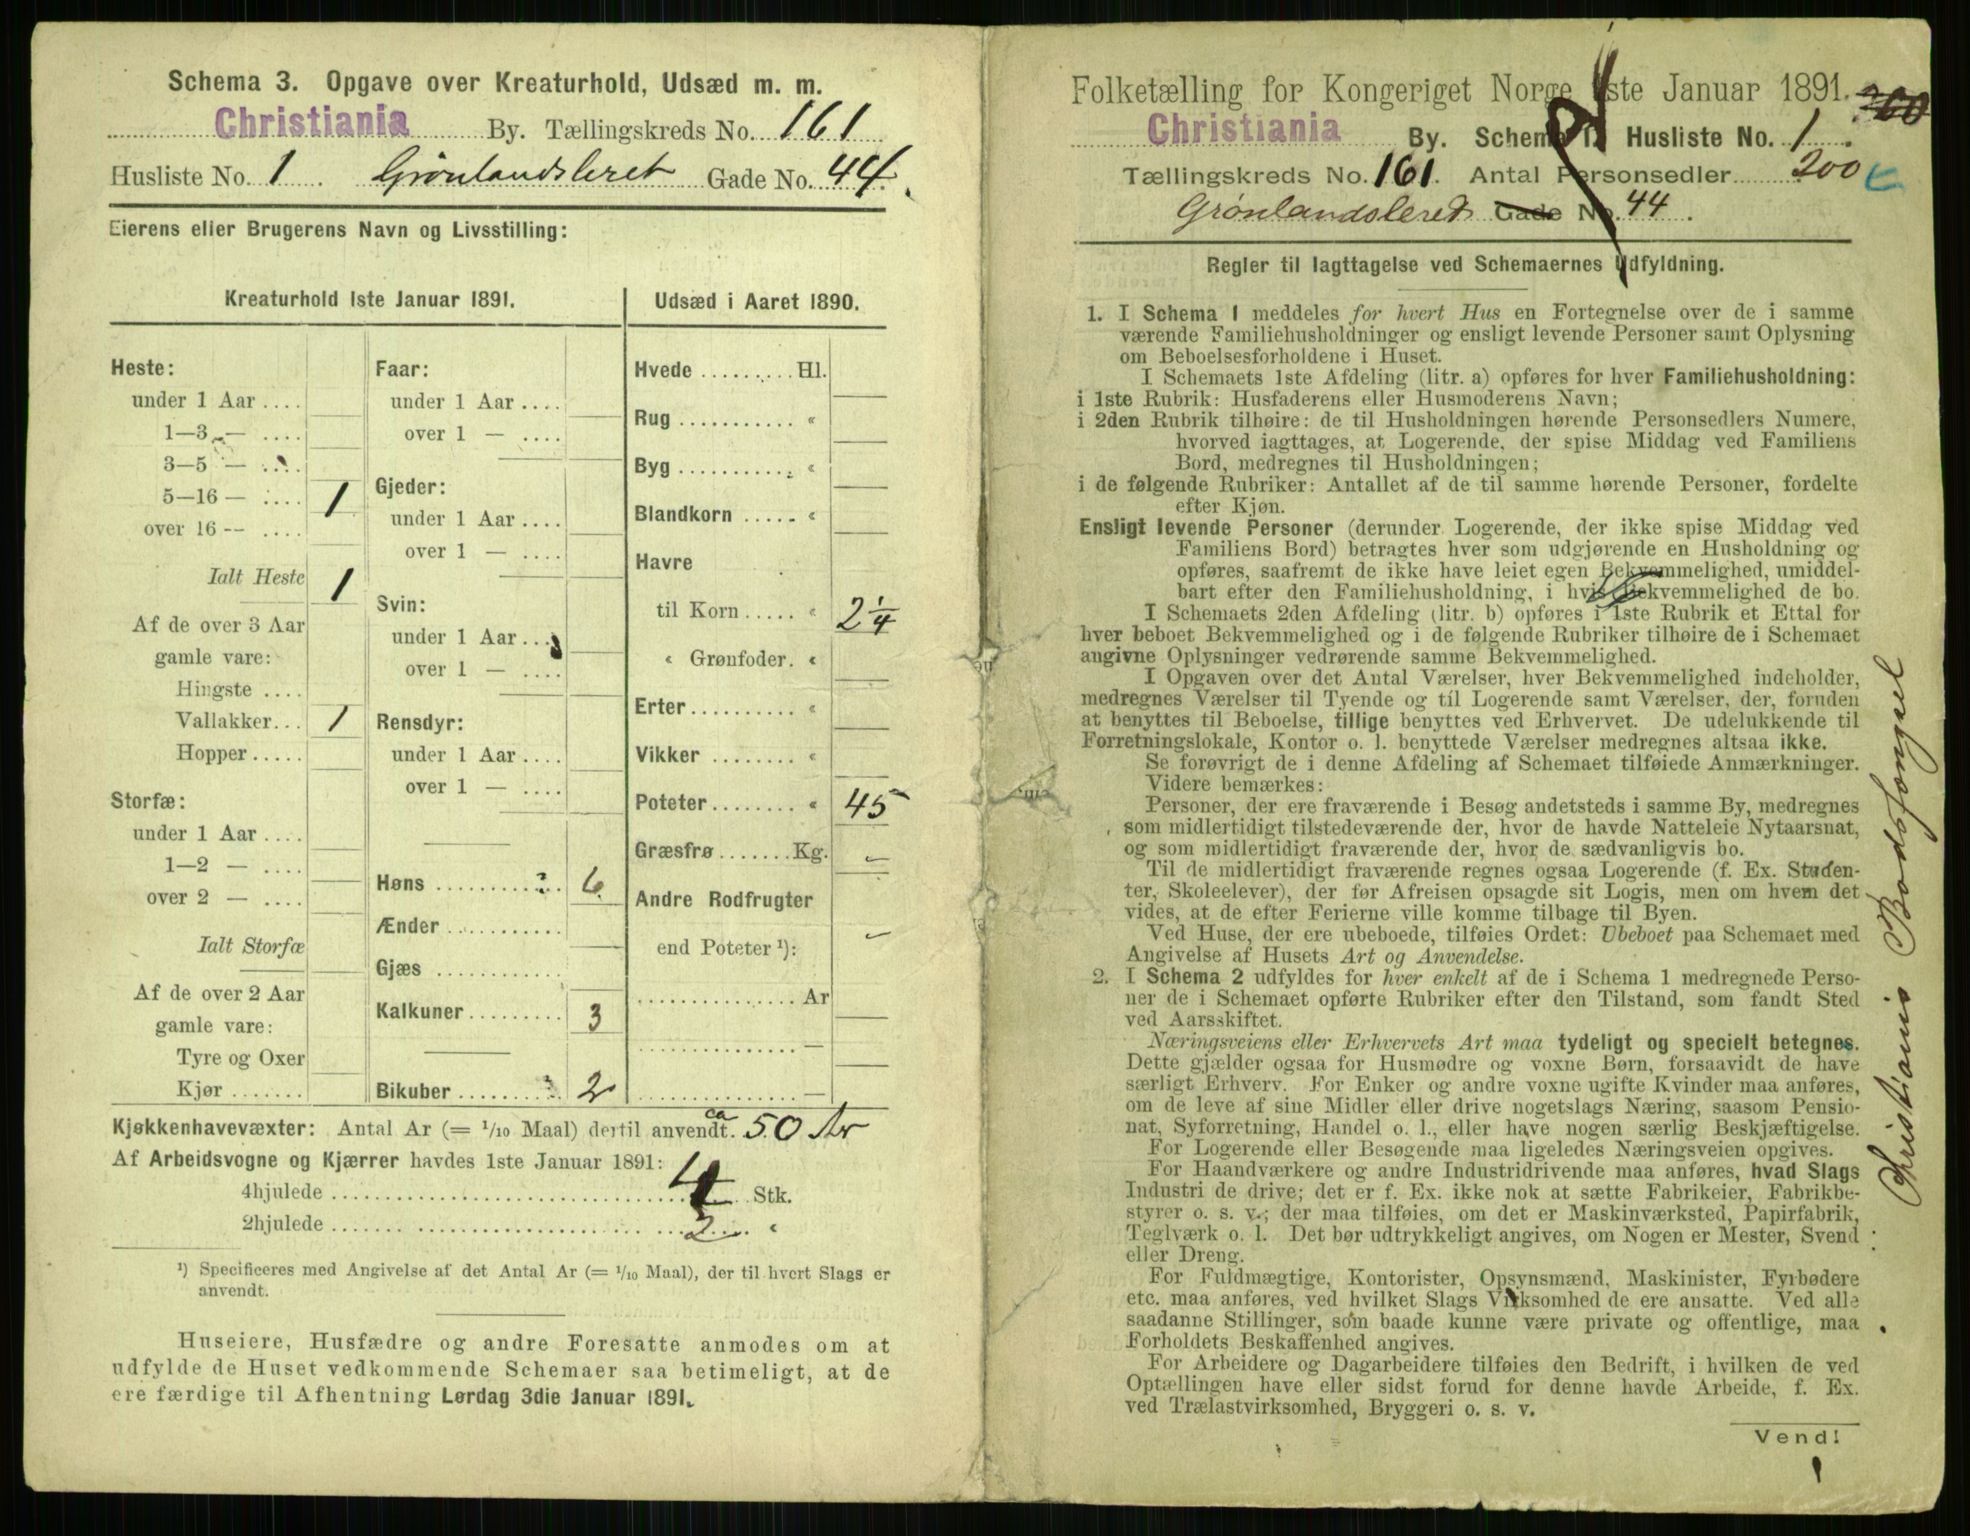 Schema 3. Opgave over Kreaturhold, Udsæd m. m.
Christiania By. Tællingskreds No. 161
Husliste No. 1 Grönlandsleret Gade No. 44.
Eierens eller Brugerens Navn og Livsstilling:
Kreaturhold 1ste Januar 1891.
Heste:
under 1 Aar ....
1—3 — ....
3—5 — ....
5—16 — .... 1
over 16 -- ....
Ialt Heste 1
Af de over 3 Aar
gamle vare:
Hingste ....
Vallakker... 1
Hopper .....
Storfæ:
under 1 Aar ....
1—2 — ....
over 2 — ....
Ialt Storfæ
Af de over 2 Aar
gamle vare:
Tyre og Oxer
Kjør .......
Faar:
under 1 Aar ....
over 1 — ....
Gjeder:
under 1 Aar ....
over 1 — ....
Svin:
under 1 Aar ....
over 1 — ....
Rensdyr:
under 1 Aar ....
over 1 — ....
Høns ........... 6
Ænder ...........
Gjæs ............
Kalkuner ......... 3
Bikuber .......... 2
Udsæd i Aaret 1890.
Hvede ......... Hl.
Rug ........... «
Byg ........... «
Blandkorn ..... «
Havre
til Korn ..... « 2 1/4
« Grønfoder. «
Erter .......... «
Vikker ........ «
Poteter ........ « 45
Græsfrø ....... Kg. —
Andre Rodfrugter
end Poteter ¹): —
............... Ar
............... —
............... —
Kjøkkenhavevæxter: Antal Ar (= 1/10 Maal) dertil anvendt. ca 50 Ar
Af Arbeidsvogne og Kjærrer havdes 1ste Januar 1891:
4hjulede .......... 4 Stk.
2hjulede .......... 2 «
¹) Specificeres med Angivelse af det Antal Ar (= 1/10 Maal), der til hvert Slags er
anvendt.
Huseiere, Husfædre og andre Foresatte anmodes om at
udfylde de Huset vedkommende Schemaer saa betimeligt, at de
ere færdige til Afhentning Lørdag 3die Januar 1891.
Folketælling for Kongeriget Norge 1ste Januar 1891. 200
Christiania By. Schema 1. Husliste No. 1.
Tællingskreds No. 161. Antal Personsedler 200
Grönlandsleret Gade No. 44.
Regler til Iagttagelse ved Schemaernes Udfyldning.
1. I Schema 1 meddeles for hvert Hus en Fortegnelse over de i samme
værende Familiehusholdninger og ensligt levende Personer samt Oplysning
om Beboelsesforholdene i Huset.
I Schemaets 1ste Afdeling (litr. a) opføres for hver Familiehusholdning:
i 1ste Rubrik: Husfaderens eller Husmoderens Navn;
i 2den Rubrik tilhøire: de til Husholdningen hørende Personsedlers Numere,
hvorved iagttages, at Logerende, der spise Middag ved Familiens
Bord, medregnes til Husholdningen;
i de følgende Rubriker: Antallet af de til samme hørende Personer, fordelte
efter Kjøn.
Ensligt levende Personer (derunder Logerende, der ikke spise Middag ved
Familiens Bord) betragtes hver som udgjørende en Husholdning og
opføres, saafremt de ikke have leiet egen Bekvemmelighed, umiddel-
bart efter den Familiehusholdning, i hvis Bekvemmelighed de bo.
I Schemaets 2den Afdeling (litr. b) opføres i 1ste Rubrik et Ettal for
hver beboet Bekvemmelighed og i de følgende Rubriker tilhøire de i Schemaet
angivne Oplysninger vedrørende samme Bekvemmelighed.
I Opgaven over det Antal Værelser, hver Bekvemmelighed indeholder,
medregnes Værelser til Tyende og til Logerende samt Værelser, der, foruden
at benyttes til Beboelse, tillige benyttes ved Erhvervet. De udelukkende til
Forretningslokale, Kontor o. l. benyttede Værelser medregnes altsaa ikke.
Se forøvrigt de i denne Afdeling af Schemaet tilføiede Anmærkninger.
Videre bemærkes:
Personer, der ere fraværende i Besøg andetsteds i samme By, medregnes
som midlertidigt tilstedeværende der, hvor de havde Natteleie Nytaarsnat,
og som midlertidigt fraværende der, hvor de sædvanligvis bo.
Til de midlertidigt fraværende regnes ogsaa Logerende (f. Ex. Studen-
ter, Skoleelever), der før Afreisen opsagde sit Logis, men om hvem det
vides, at de efter Ferierne ville komme tilbage til Byen.
Ved Huse, der ere ubeboede, tilføies Ordet: Ubeboet paa Schemaet med
Angivelse af Husets Art og Anvendelse.
2. I Schema 2 udfyldes for hver enkelt af de i Schema 1 medregnede Perso-
ner de i Schemaet opførte Rubriker efter den Tilstand, som fandt Sted
ved Aarsskiftet.
Næringsveiens eller Erhvervets Art maa tydeligt og specielt betegnes.
Dette gjælder ogsaa for Husmødre og voxne Børn, forsaavidt de have
særligt Erhverv. For Enker og andre voxne ugifte Kvinder maa anføres,
om de leve af sine Midler eller drive nogetslags Næring, saasom Pensio-
nat, Syforretning, Handel o. l., eller have nogen særlig Beskjæftigelse.
For Logerende eller Besøgende maa ligeledes Næringsveien opgives.
For Haandværkere og andre Industridrivende maa anføres, hvad Slags
Industri de drive; det er f. Ex. ikke nok at sætte Fabrikeier, Fabrikbe-
styrer o. s. v.; der maa tilføies, om det er Maskinværksted, Papirfabrik,
Teglværk o. l. Det bør udtrykkeligt angives, om Nogen er Mester, Svend
eller Dreng.
For Fuldmægtige, Kontorister, Opsynsmænd, Maskinister, Fyrbødere
etc. maa anføres, ved hvilket Slags Virksomhed de ere ansatte. Ved alle
saadanne Stillinger, som baade kunne være private og offentlige, maa
Forholdets Beskaffenhed angives.
For Arbeidere og Dagarbeidere tilføies den Bedrift, i hvilken de ved
Optællingen have eller sidst forud for denne havde Arbeide, f. Ex.
ved Trælastvirksomhed, Bryggeri o. s. v.
Vend!
Christiania Bodsfængsel